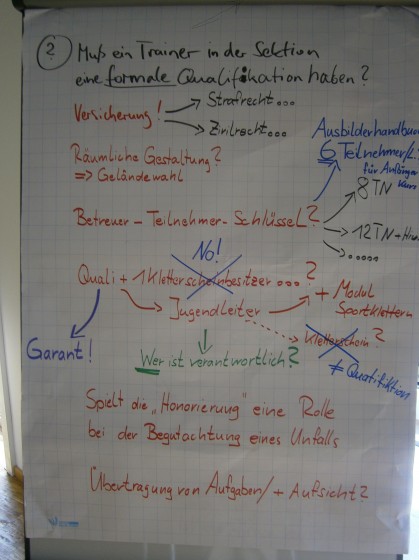 2 Muß ein Trainer in der Sektion
eine formale Qualifikation haben?
Versicherung! → Strafrecht...
→ Zivilrecht...
Ausbilderhandbuch
6 Teilnehmer/L.
für Anfänger
Kurs
Räumliche Gestaltung?
⇒ Geländewahl
8 TN
Betreuer - Teilnehmer - Schlüssel?
→ 12 TN +
→ .....
No!
Quali + 1 Kletterscheinbesitzer ...?
→ Jugendleiter → + Modul
Sportklettern
Kletterschein?
≠ Qualifiktion
Garant!
Wer ist verantwortlich?
Spielt die „Honorierung" eine Rolle
bei der Begutachtung eines Unfalls
Übertragung von Aufgaben / + Aufsicht?